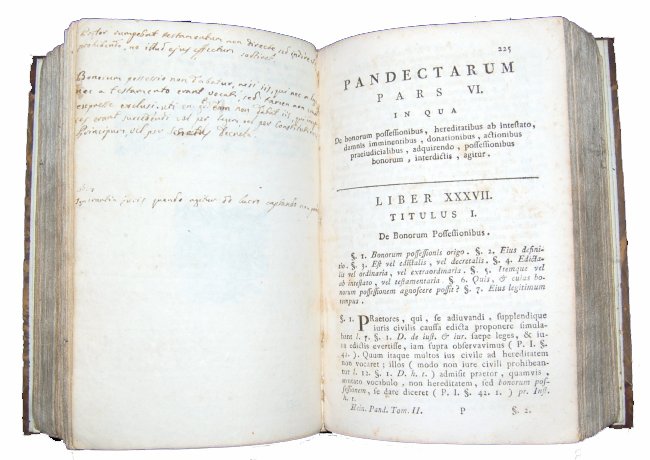 Bonorum possessio non
nec a testamento erant vocati, sed tamen non
exclusi, uti
vel per legem vel per
Principum, vel per Decreta.
juris quando agitur de lucro captando non
225
PANDECTARUM
PARS VI.
IN QUA
De bonorum possessionibus, hereditatibus ab intestato,
damnis imminentibus, donationibus, actionibus
praeiudicialibus, adquirendo, possessionibus
bonorum, interdictis, agitur.
LIBER XXXVII.
TITULUS I.
De Bonorum Possessionibus.
§. 1. Bonorum possessionis origo. §. 2. Eius defini-
tio. §. 3. Est vel edictalis, vel decretalis. §. 4. Edicta-
lis vel ordinaria, vel extraordinaria. §. 5. Itemque vel
ab intestato, vel testamentaria. §. 6. Quis, & cuius bo-
norum possessionem agnoscere possit? §. 7. Eius legitimum
tempus.
§. 1. PRaetores, qui, se adiuvandi, supplendique
iuris civilis caussa edicta proponere simula-
bant l. 7. §. 1. D. de iust. & iur. saepe leges, & iu-
ra edictis evertisse, iam supra observavimus (P. I. §.
42.). Quum itaque multos ius civile ad hereditatem
non vocaret; illos (modo non iure civili prohiban-
tur l. 12. §. 1. D. h. t.) admisit praetor, quamvis,
mutato vocabulo, non hereditatem, sed bonorum pos-
sessionem, se dare diceret (P. I. §. 42. 1.) pr. Inst.
h. t.
Hein. Pand. Tom. II. P §. 2.